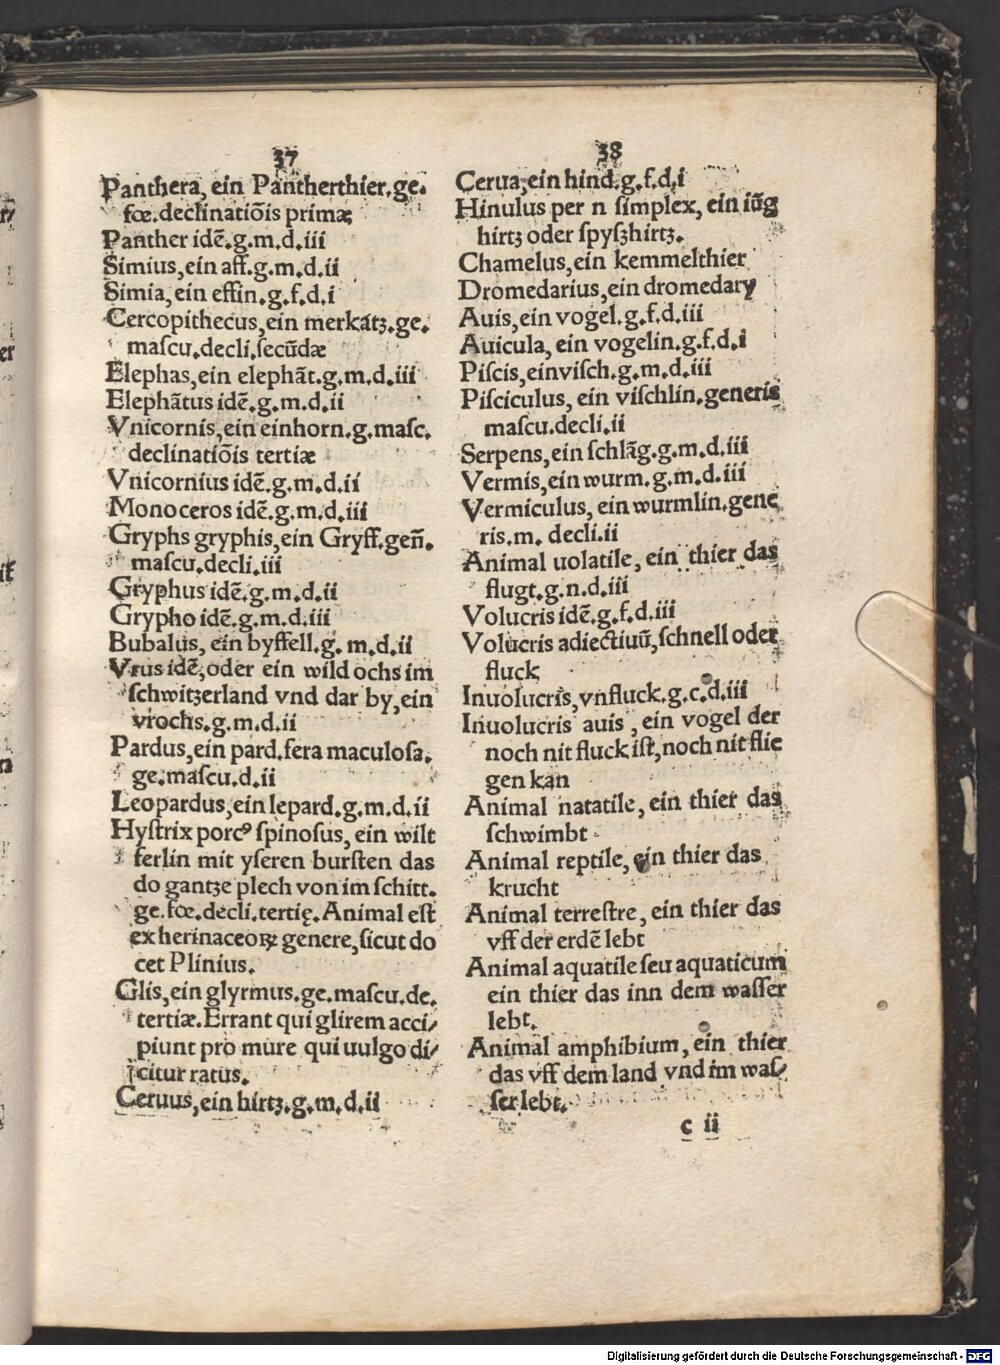 37
Panthera, ein Pantherthier.ge.
fœ.declinatiōis primæ
Panther idē.g.m.d.iii
Simius,ein aff.g.m.d.ii
Simia,ein effin.g.f.d.i
Cercopithecus,ein merkatz.ge.
maſcu.decli.ſecūdæ
Elephas,ein elephāt.g.m.d.iii
Elephātus idē.g.m.d.ii
Vnicornis,ein einhorn.g.maſc.
declinatiōis tertiæ
Vnicornius idē.g.m.d.ii
Monoceros idē.g.m.d.iii
Gryphs gryphis,ein Gryff.gen̄.
maſcu.decli.iii
Gryphus idē.g.m.d.ii
Grypho idē.g.m.d.iii
Bubalus, ein byffell.g. m.d.ii
Vrus idē,oder ein wild ochs im
ſchwitzerland vnd dar by,ein
vrochs.g.m.d.ii
Pardus,ein pard.fera maculoſa.
ge.maſcu.d.ii
Leopardus,ein lepard.g.m.d.ii
Hyſtrix porcꝰ ſpinoſus, ein wilt
ferlin mit yſeren burſten das
do gantze plech von im ſchitt.
ge.fœ.decli.tertię.Animal eſt
ex herinaceoꝝ genere,ſicut do
cet Plinius.
Glis,ein glyrmus.ge.maſcu.de.
tertiæ.Errant qui glirem acci/
piunt pro mure qui uulgo di/
citur ratus.
Ceruus,ein hirtz.g.m.d.ii
38
Cerua,ein hind.g.f.d.i
Hinulus per n ſimplex, ein iūg
hirtz oder ſpyſzhirtz.
Chamelus,ein kemmelthier
Dromedarius,ein dromedary
Auis,ein vogel.g.f.d.iii
Auicula, ein vogelin.g.f.d.i
Piſcis,einviſch.g.m.d.iii
Piſciculus, ein viſchlin.generis
maſcu.decli.ii
Serpens,ein ſchlāg.g.m.d.iii
Vermis,ein wurm.g.m.d.iii
Vermiculus, ein wurmlin.gene
ris.m. decli.ii
Animal uolatile, ein thier das
flugt.g.n.d.iii
Volucris idē.g.f.d.iii
Volucris adiectiuū,ſchnell oder
fluck
Inuolucris,vnfluck.g.c.d.iii
Inuolucris auis , ein vogel der
noch nit fluck iſt,noch nit flie
gen kan
Animal natatile, ein thier das
ſchwimbt
Animal reptile, ein thier das
krucht
Animal terreſtre, ein thier das
vff der erdē lebt
Animal aquatile ſeu aquaticum
ein thier das inn dem waſſer
lebt.
Animal amphibium, ein thier
das vff dem land vnd im waſ/
ſer lebt.
c ii
Digitalisierung gefördert durch die Deutsche Forschungsgemeinschaft - DFG